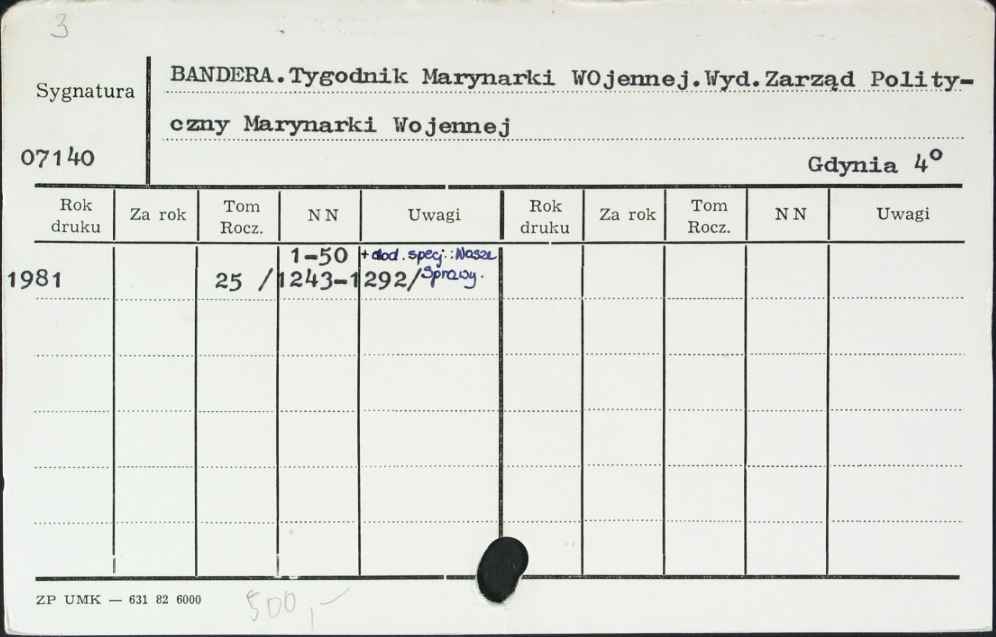 3
Sygnatura
BANDERA.Tygodnik Marynarki WOjennej.Wyd.Zarząd Polity-
czny Marynarki Wojennej
07140
Gdynia 4°
Rok druku Za rok Tom Rocz. NN Uwagi Rok druku Za rok Tom Rocz. NN Uwagi
1-50 +dod. specj.: Nasze
1981 25 /1243-1292/ Sprawy.
ZP UMK — 631 82 6000
500,-